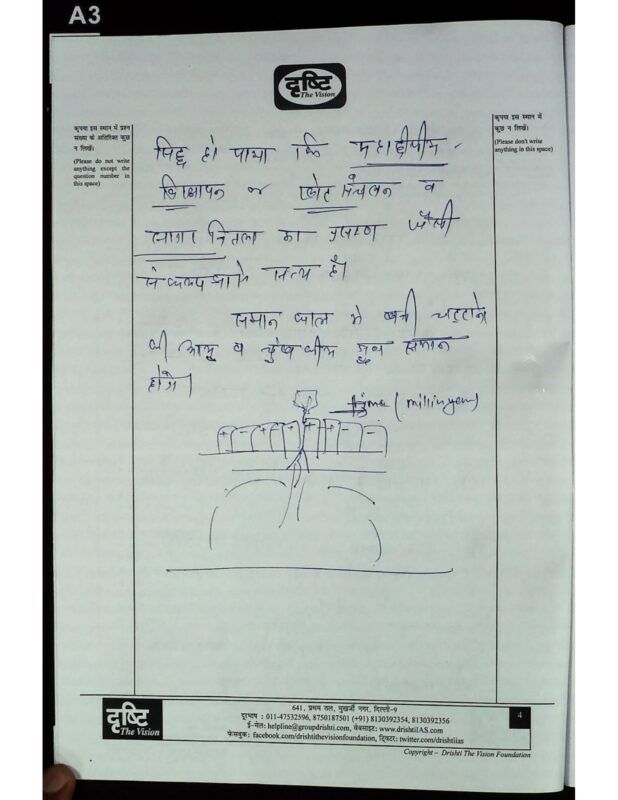 A3
दृष्टि
The Vision
कृपया इस स्थान में प्रश्न
संख्या के अतिरिक्त कुछ
न लिखें।
(Please do not write
anything except the
question number in
this space)
कृपया इस स्थान में
कुछ न लिखें।
(Please don't write
anything in this space)
सिद्ध हो पाया कि महाद्वीपीय
विस्थापन प्लेट व
सागर नितल का प्रसरण जैसी
सत्य है।
समान काल में बनी चट्टानों
की आयु व चुंबकीय गुण समान
होंगे।
time (million year)
+ - + + + + - -
दृष्टि
The Vision
641, प्रथम तल, मुखर्जी नगर, दिल्ली-9
दूरभाष : 011-47532596, 8750187501 (+91) 8130392354, 8130392356
ई-मेल: helpline@groupdrishti.com, वेबसाइट: www.drishtiIAS.com
फेसबुक: facebook.com/drishtithevisionfoundation, ट्विटर: twitter.com/drishtiias
4
Copyright – Drishti The Vision Foundation